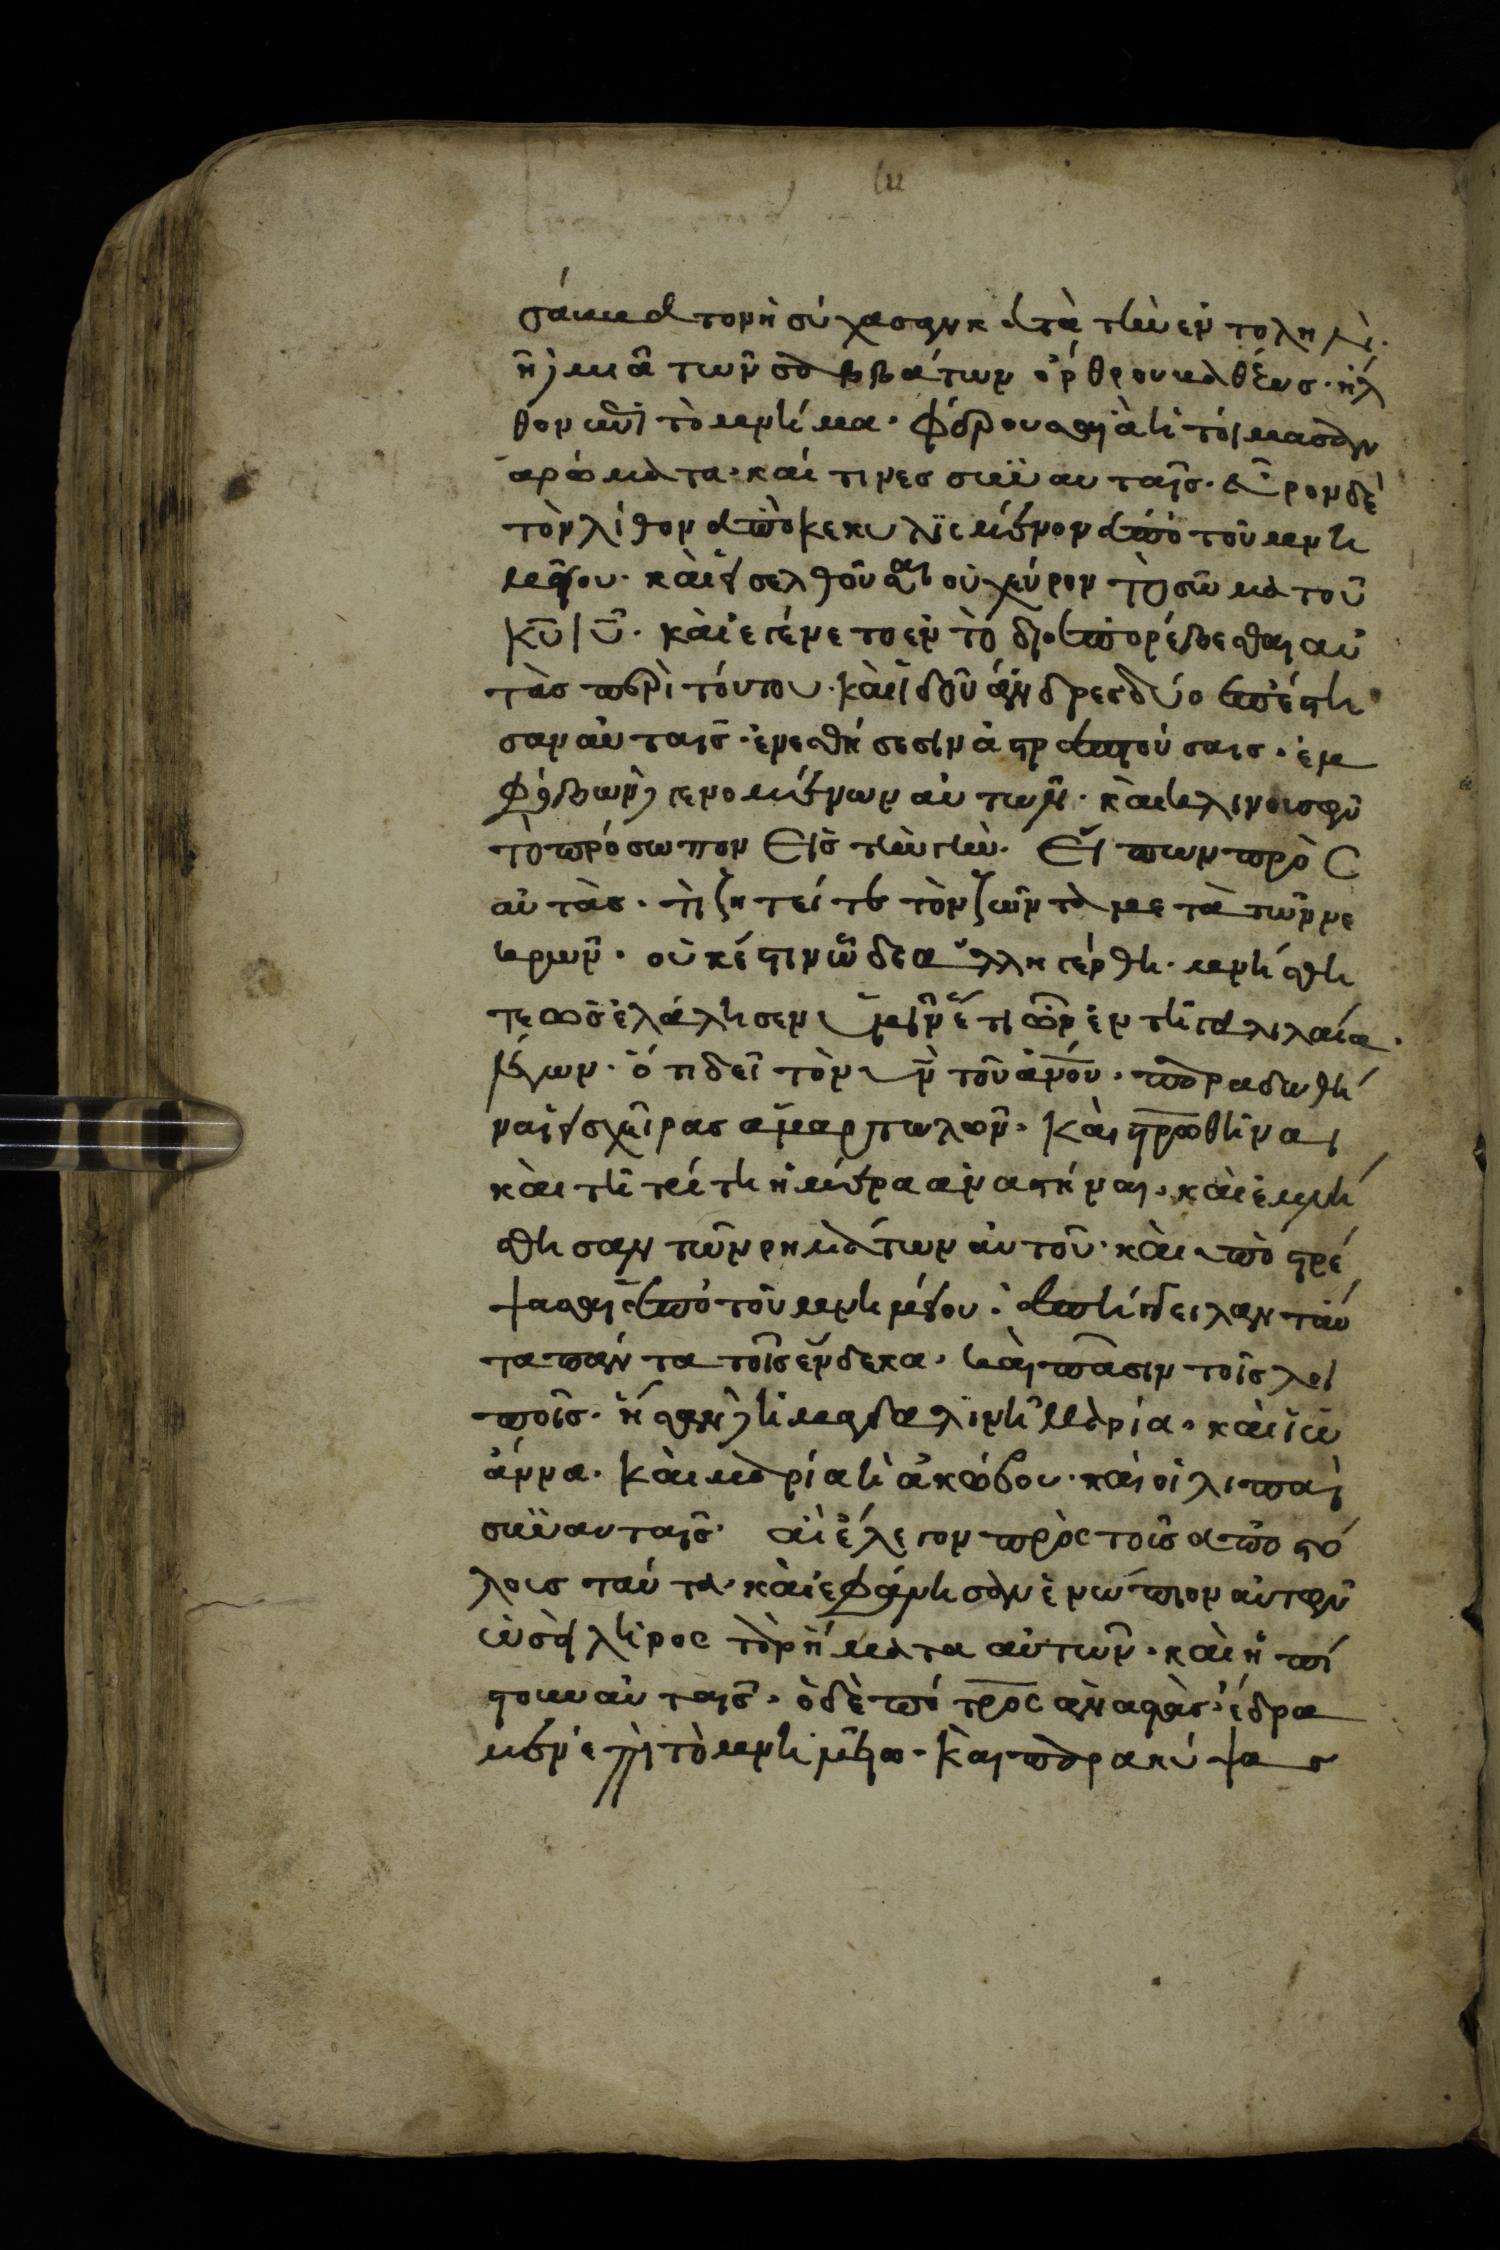 σάββατον ἡσύχασαν κατὰ τὴν ἐντολήν.
τῆ μιᾶ τῶν σαββάτων ὄρθρου βαθέως. ἦλ
θον ἐπὶ τὸ μνῆμα. φέρουσαι ἃ ἡτοίμασαν
ἀρώματα. καί τινες σὺν αυταῖς. εὗρον δὲ
τὸν λίθον ἀποκεκυλισμένον ἀπὸ τοῦ μνη
μείου. καὶ εἰσελθοῦσαι οὐχ εὗρον τὸ σῶμα τοῦ
κ̅υ̅ ι̅υ̅. καὶ ἐγένετο ἐν τὸ διαπορεῖσθαι αὐ
τὰς περὶ τούτου. καὶ ἰδοῦ ἄνδρες δύο ἐπέστη
σαν αὐταῖς. ἐν ἐσθήσεσιν ἀστραπτούσαις. ἐμ
φόβων γενομένων αὐτῶν. καὶ κλινουσῶν
τὸ πρόσωπον εἰς τὴν γὴν. εἶπων πρὸς
αὐτὰς. τὶ ζητεῖτε τὸν ζῶντα μετὰ τῶν νε
κρων. οὐκ ἔστιν ὧδε ἀλλ ηγέρθη. μνήσθη
τε ὡς ἐλάλησεν ὑμῖν ἔτι ὢν ἐν τῆ γαλιλαία.
λέγων. ὅτι δεῖ τὸν υ̅ν̅ τοῦ α̅ν̅ο̅υ̅. παραδωθῆ
ναι εἰς χεῖρας ἁμαρτωλῶν. καὶ σ̅τ̅ρ̅ωθῆναι
καὶ τῆ τρίτη ἡμέρα αναστήναι. καὶ ἐμνή
σθησαν τῶν ρημάτων αὐτοῦ. καὶ ὑποστρέ
ψασαι ἀπὸ τοῦ μνημείου. ἀπήγγειλαν ταῦ
τα παντα τοῖς ἕνδεκα. καὶ πᾶσιν τοῖς λοι
ποῖς. ἦσαν δὲ ἡ μαγδαλινὴ μαρία. καὶ ἰω
άννα. καὶ μαρία ἡ ἀκώβου. καὶ οἱ λιπαὶ
σὺν αυταῖς. αἳ ἔλεγον πρὸς τοῖς ἀποστό
λοις ταύτα. καὶ ἐφάνησαν ἐνώπιον αὐτῶν
ὡσὰ λῆρος τὰ ρήματα αὐτῶν. καὶ ἠπί
στουν αὐταῖς. ὁ δὲ πέτρος ἀναστὰς. ἔδρα
μεν ἐπὶ τὸ μνημεῖω. καὶ παρακύψας